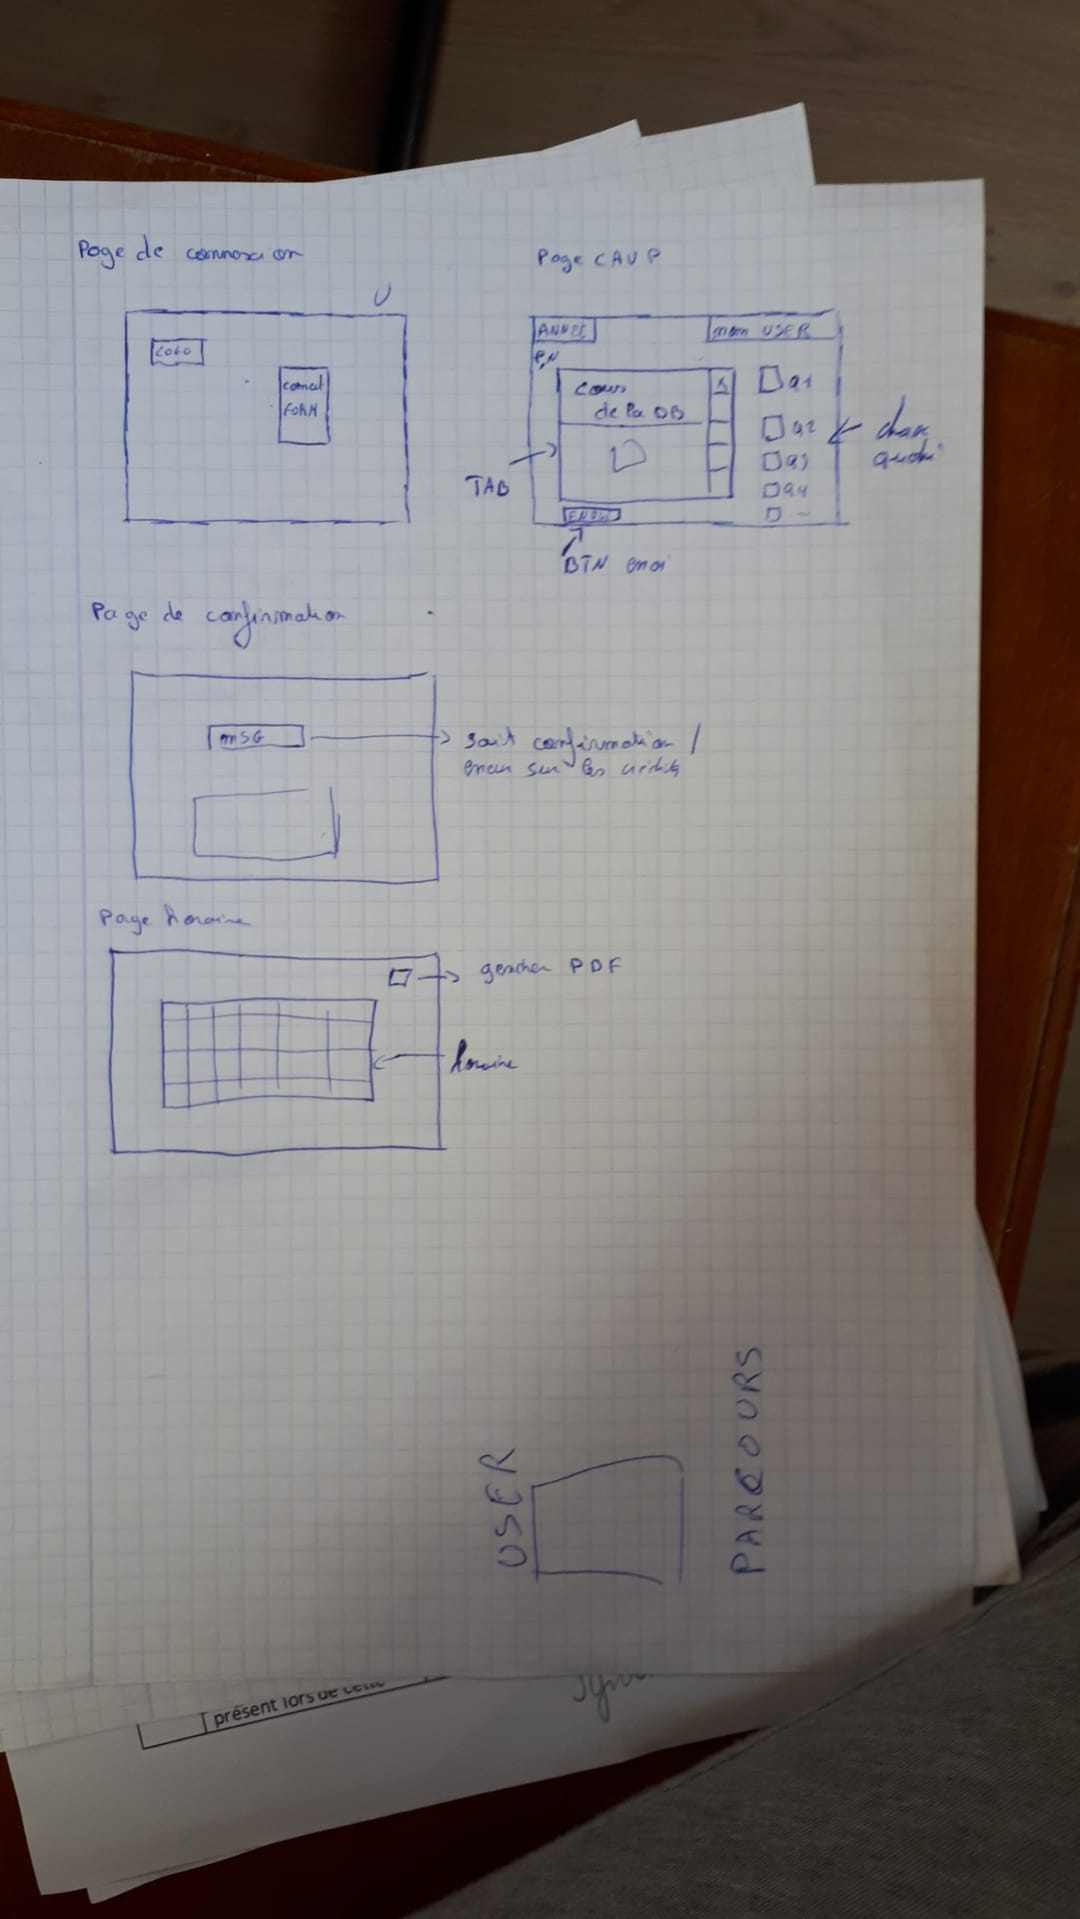 Page de connexion
Page CAVP
LOGO
connect
FORM
ANNEE
nom USER
Cours
de la DB
X
Q1
Q2
Q3
Q4
choix
TAB
ENVOI
BTN envoi
Page de confirmation
MSG
soit confirmation /
erreur sur les crédits
Page horaire
PDF
horaire
USER
PARCOURS
présent lors de cette